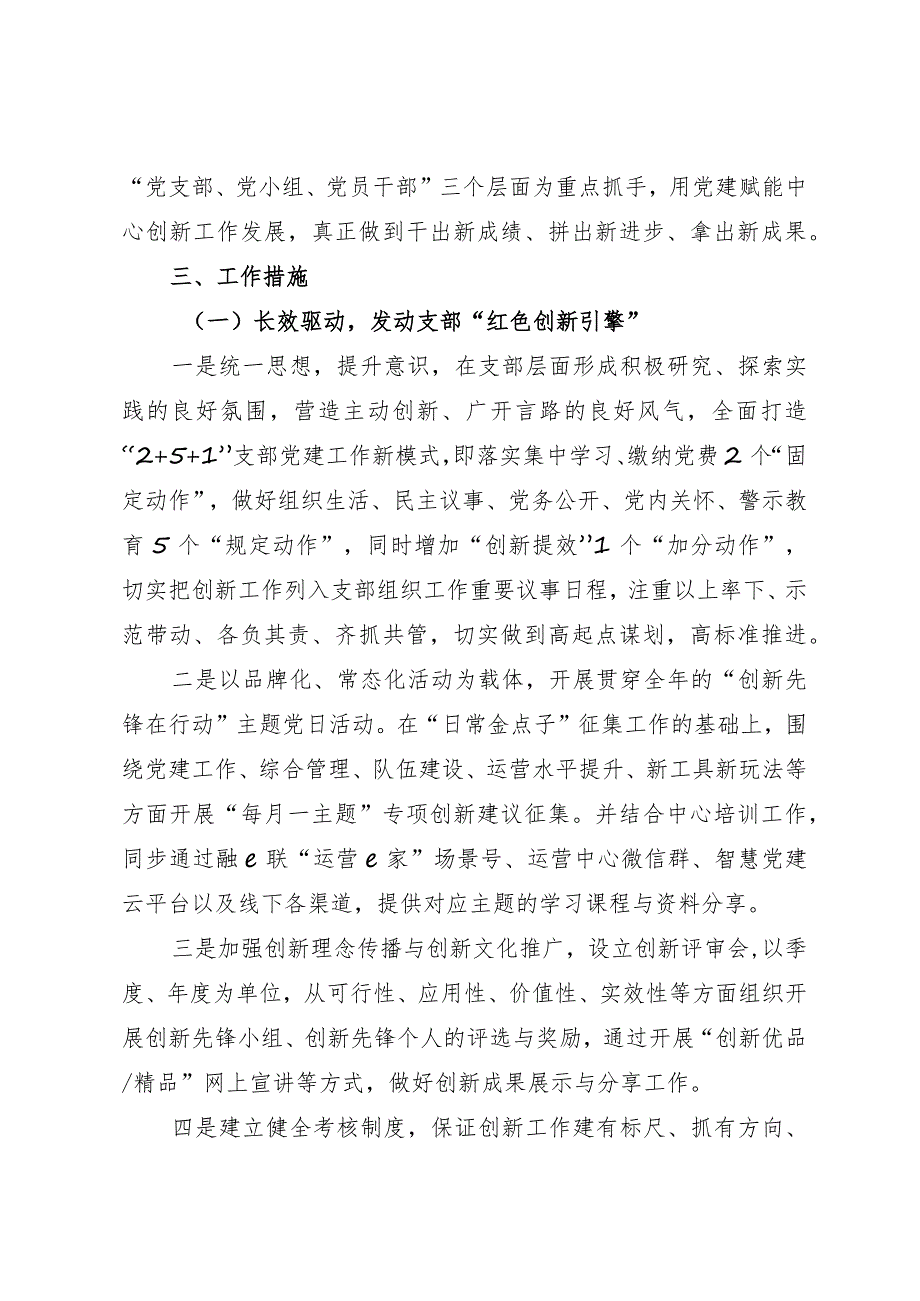 “党支部、党小组、党员干部”三个层面为重点抓手，用党建赋能中
心创新工作发展，真正做到干出新成绩、拼出新进步、拿出新成果。
三、工作措施
（一）长效驱动，发动支部“红色创新引擎”
一是统一思想，提升意识，在支部层面形成积极研究、探索实
践的良好氛围，营造主动创新、广开言路的良好风气，全面打造
“2+5+1”支部党建工作新模式,即落实集中学习、缴纳党费2个“固
定动作”，做好组织生活、民主议事、党务公开、党内关怀、警示教
育5个“规定动作”，同时增加“创新提效”1个“加分动作”，
切实把创新工作列入支部组织工作重要议事日程，注重以上率下、示
范带动、各负其责、齐抓共管，切实做到高起点谋划，高标准推进。
二是以品牌化、常态化活动为载体，开展贯穿全年的“创新先
锋在行动”主题党日活动。在“日常金点子”征集工作的基础上，围
绕党建工作、综合管理、队伍建设、运营水平提升、新工具新玩法等
方面开展“每月一主题”专项创新建议征集。并结合中心培训工作，
同步通过融e联“运营e家”场景号、运营中心微信群、智慧党建
云平台以及线下各渠道，提供对应主题的学习课程与资料分享。
三是加强创新理念传播与创新文化推广，设立创新评审会,以季
度、年度为单位，从可行性、应用性、价值性、实效性等方面组织开
展创新先锋小组、创新先锋个人的评选与奖励，通过开展“创新优品
/精品”网上宣讲等方式，做好创新成果展示与分享工作。
四是建立健全考核制度，保证创新工作建有标尺、抓有方向、